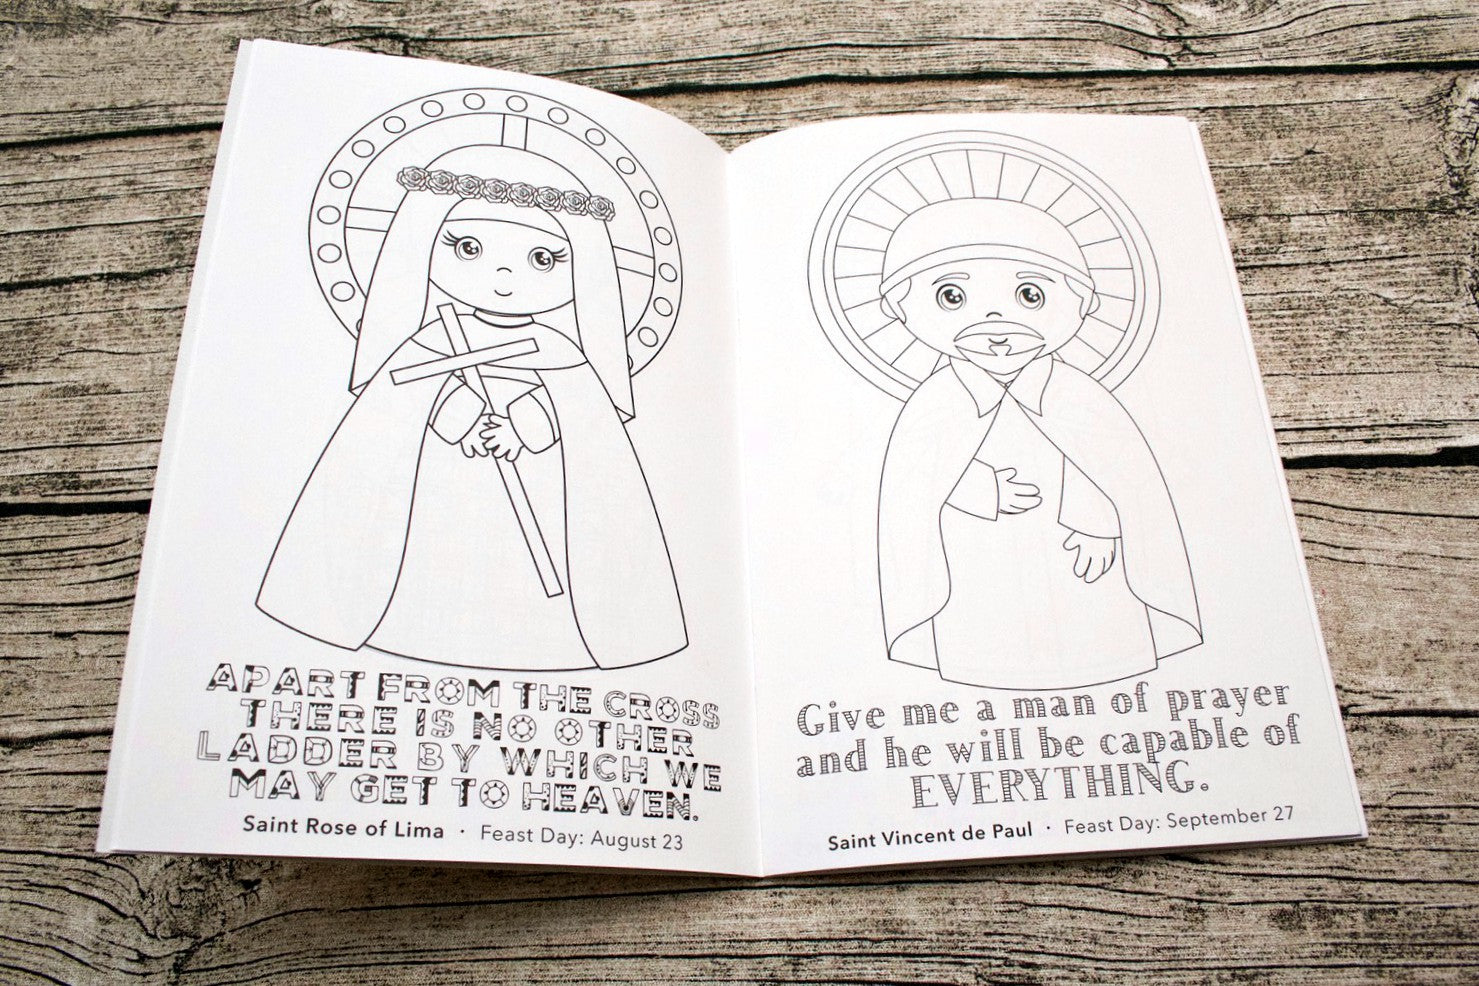 APART FROM THE CROSS
THERE IS NO OTHER
LADDER BY WHICH WE
MAY GET TO HEAVEN.
Saint Rose of Lima · Feast Day: August 23
Give me a man of prayer
and he will be capable of
EVERYTHING.
Saint Vincent de Paul · Feast Day: September 27